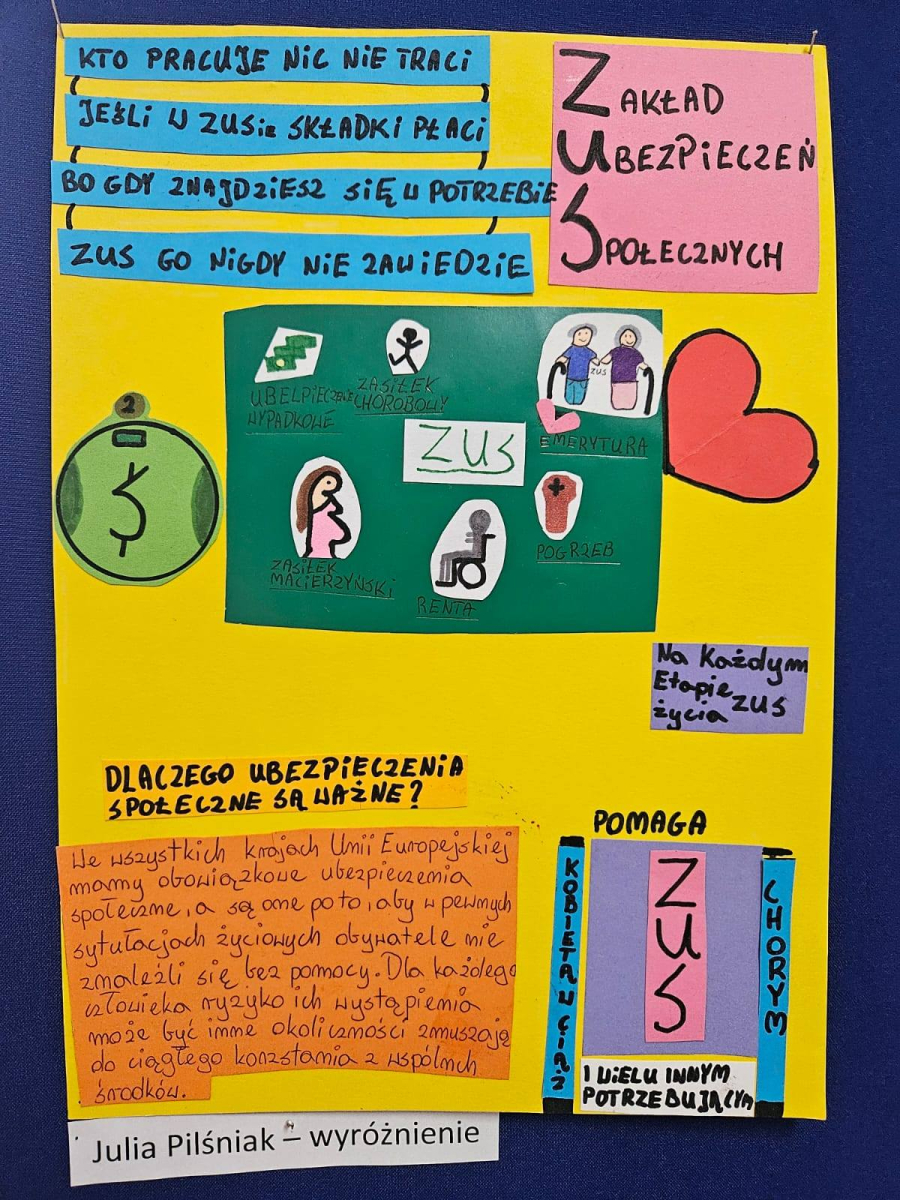 KTO PRACUJE NIC NIE TRACI
JEŚLI W ZUSie SKŁADKI PŁACI
BO GDY ZNAJDZIESZ SIĘ W POTRZEBIE
ZUS GO NIGDY NIE ZAWIEDZIE
ZAKŁAD
UBEZPIECZEŃ
SPOŁECZNYCH
UBELPIECZENIE
WYPADKOWE
ZASIŁEK
CHOROBOWY
ZUS
EMERYTURA
ZUS
2
ZASIŁEK
MACIERZYŃSKI
RENTA
POGRZEB
Na Każdym
Etapie ZUS
życia
DLACZEGO UBEZPIECZENIA
SPOŁECZNE SĄ WAŻNE?
We wszystkich krajach Unii Europejskiej
mamy obowiązkowe ubezpieczenia
społeczne, a są one po to, aby w pewnych
sytułacjach życiowych obywatele nie
znaleźli się bez pomocy. Dla każdego
człowieka ryzyko ich wystąpienia
może być inne okoliczności zmuszają
do ciągłego korzstania z wspólnch
środków.
POMAGA
KOBIETĄ W CIĄŻ
ZUS
CHORYM
I WIELU INNYM
POTRZEBUJĄCYM
Julia Pilśniak – wyróżnienie